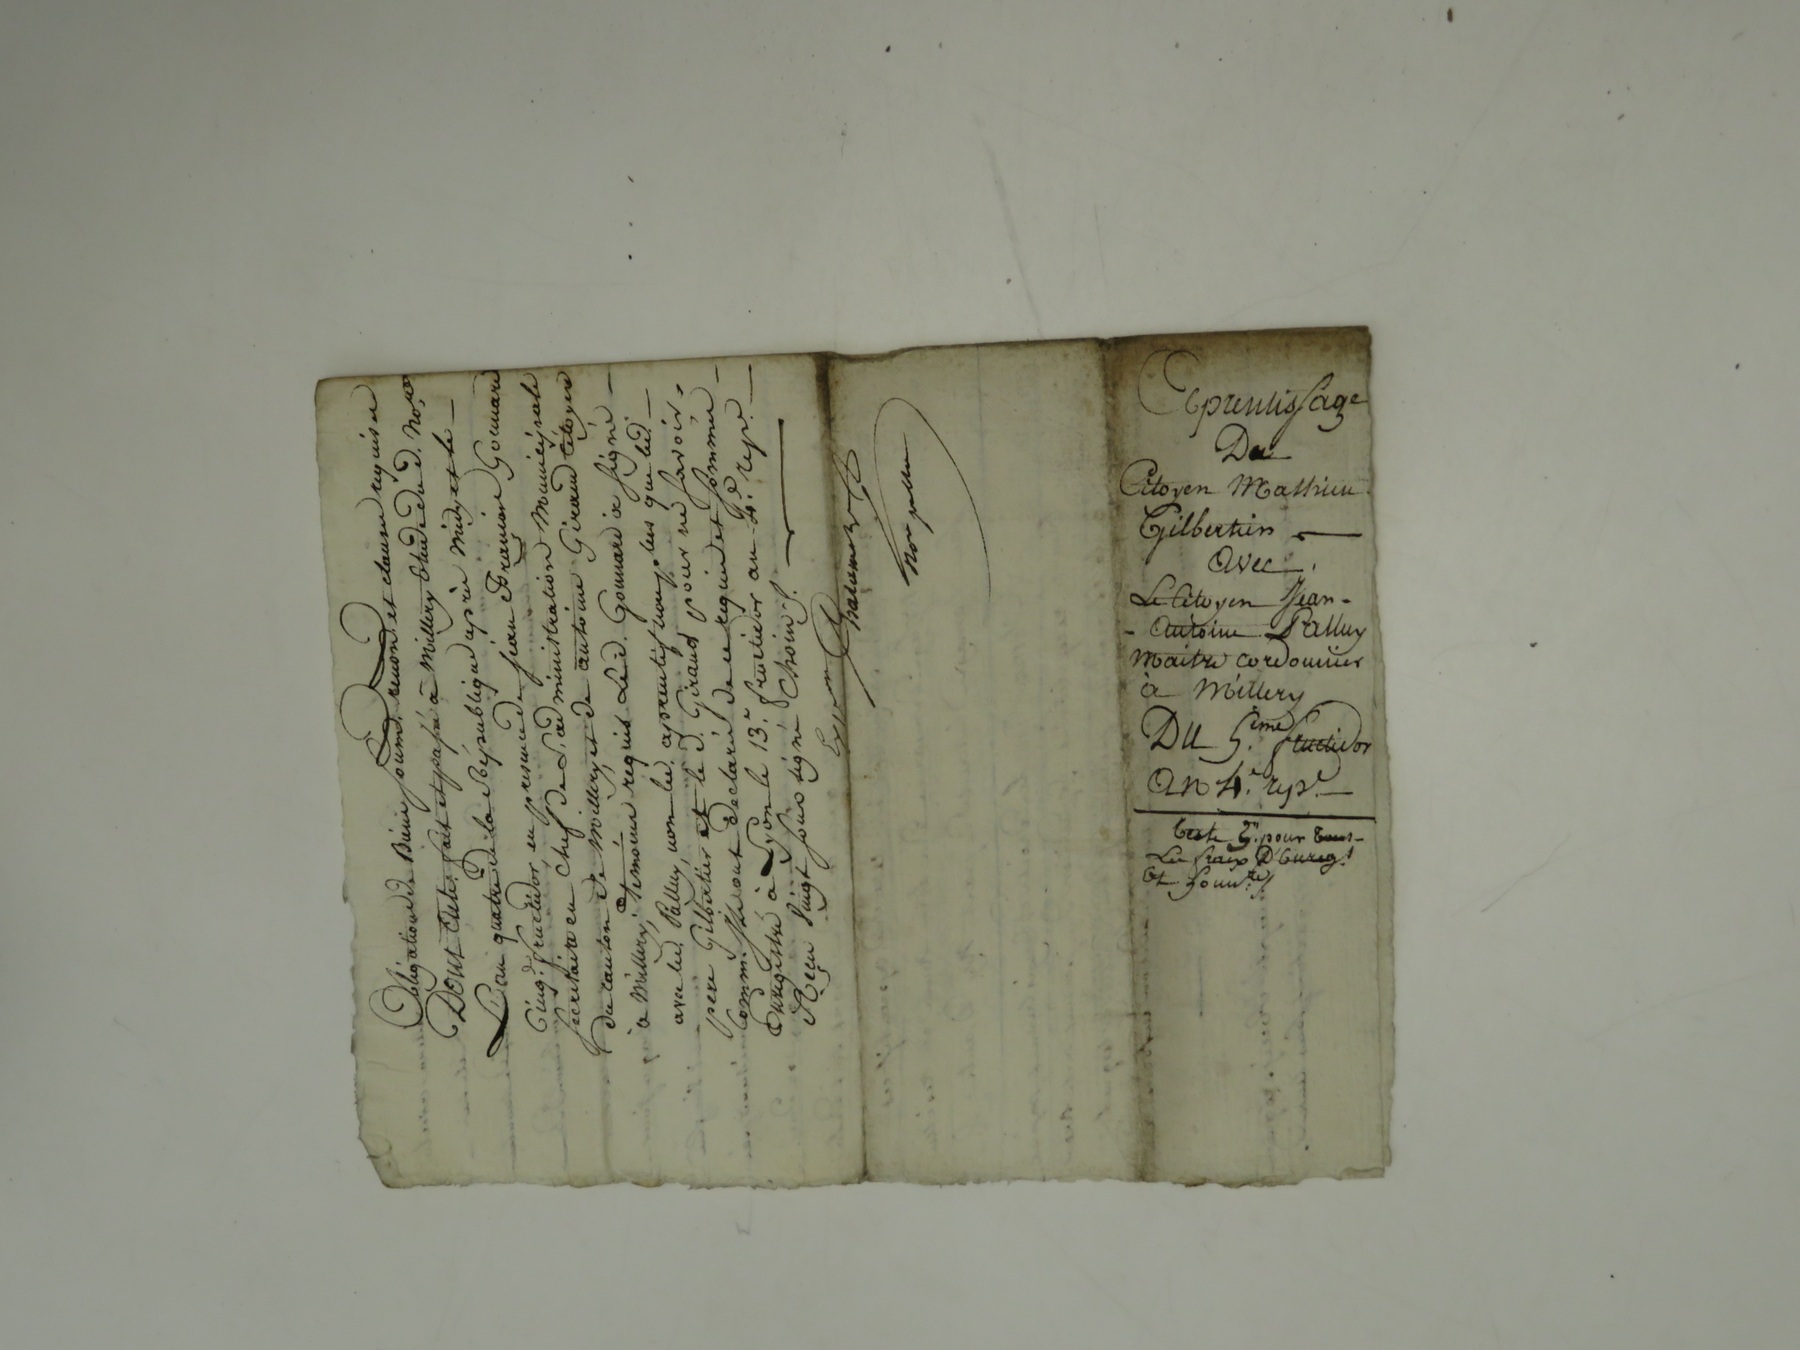 Obligation de Biens soumis. renon. et clauses requises
Dont acte. fait et passé à Millery Etude dud. No.re
L'an quatre de la République après Midy et le
cinq fructidor, en presence de jean François Gonnard
secretaire en chef de L'administration Municipale
du canton de Millery, et de antoine Giraud citoyen
à Millery, temoins requis Le d. Gonnard a signé
avec led. Palluy, non led. aprentif non plus que led.
pere Gilbertier et le d. Giraud pour ne savoir,
comm. Ils ont declaré de ce requis et sommés
Enregistré à Lyon le 13.e fructidor an 4.e rep.e
Reçu vingt sous signé Choin
Expon
Aprentissage
Du
Citoyen Mathieu
Gilbertier
avec
Le Citoyen Jean-
Antoine Palluy
Maitre cordonnier
à Millery
Du 5.eme fructidor
an 4.e rep.e
pour tous
Les fraix D'Enreg.t
Et